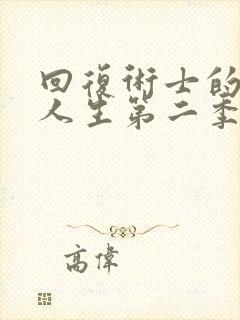 回復術士的
人生第二季
高偉